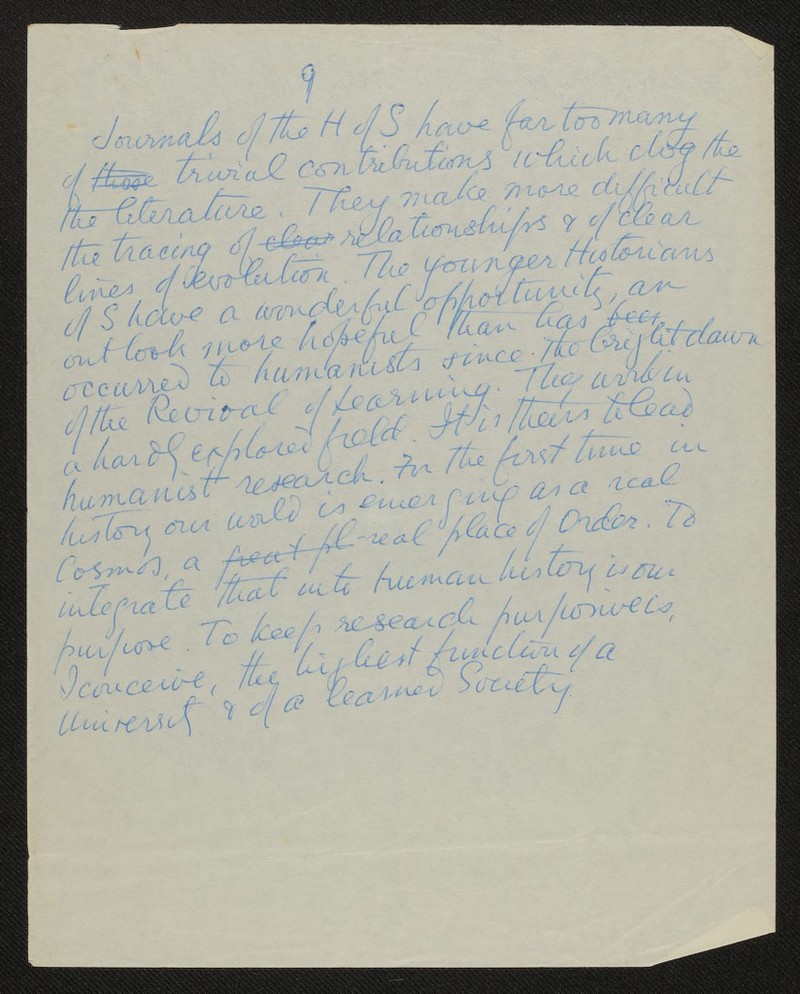 9
Journals of the H of S have far too many
of those trivial contributions which clog the
the literature. They make more difficult
the tracing of clear relationships & of clear
lines of evolution. The younger Historians
of S have a wonderful opportunity, an
outlook more hopeful than has been
occurred to humanists since the bright dawn
of the Revival of Learning. They work in
a hardly explored field. It is theirs to lead
humanist research. For the first time in
history our world is emerging as a real
Cosmos, a great pl- real place of Order. To
integrate that into human history is our
purpose. To keep research purposive is,
I conceive, the highest function of a
University & of a learned Society.